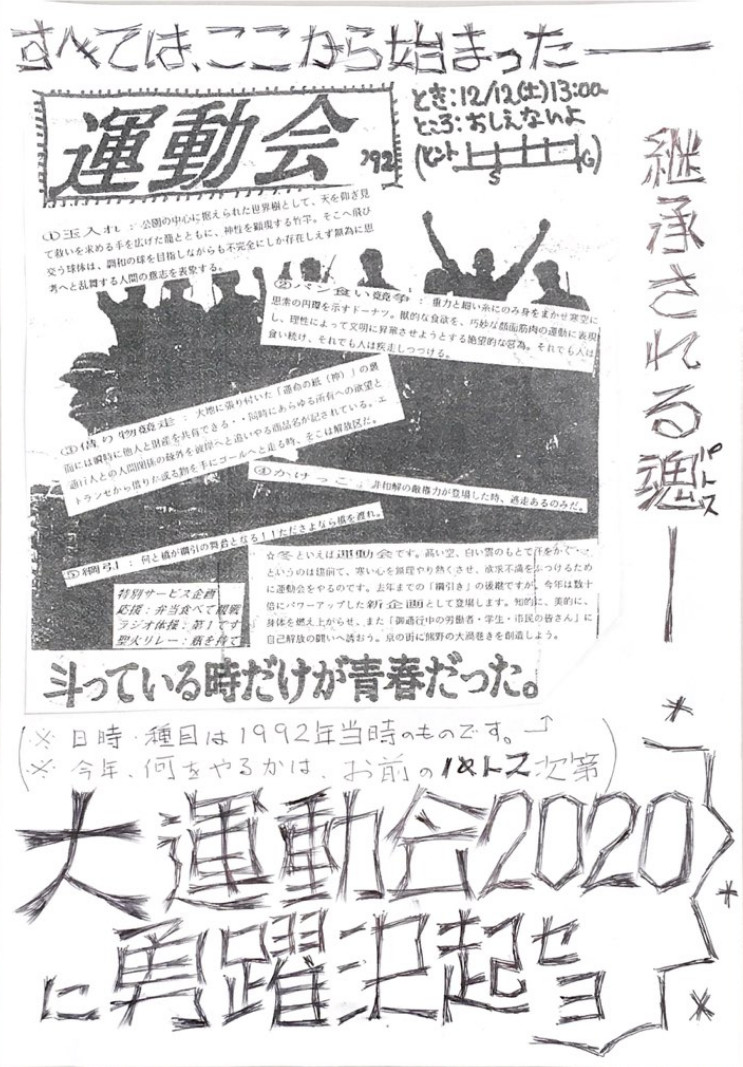 すべては、ここから始まった――
運動会 '92
とき:12/12(土)13:00~
ところ:おしえないよ
(ヒント S G)
継承される魂―
パトス
①玉入れ:公園の中心に据えられた世界樹として、天を仰ぎ見
て救いを求める手を広げた龍とともに、神性を顕現する竹竿。そこへ飛び
交う球体は、調和の球を目指しながらも不完全にしか存在しえず無為に思
考へと乱舞する人間の意志を表象する。
②パン食い競争:重力と細い糸にのみ身をまかせ寒空に
思索の円環を示すドーナツ。獣的な食欲を、巧妙な顔面筋肉の運動に表現
し、理性によって文明に昇華させようとする絶望的な営為。それでも人は
食い続け、それでも人は疾走しつつける。
③借り物競走:大地に張り付いた「運命の紙(神)」の裏
面には瞬時に他人と財産を共有できる・・同時にあらゆる所有への欲望と
通行人との人間関係の疎外を彼岸へと追いやる商品名が記されている。エ
トランセから借りた或る物を手にゴールへと走る時、そこは解放区だ。
④かけっこ:非和解の敵権力が登場した時、過走あるのみだ。
⑤綱引:何と橋が綱引の舞台となる!!たださよなら橋を渡れ。
☆冬といえば運動会です。高い空、白い雲のもとで汗をかぐ
というのは建前で、寒い心を無理やり熱くさせ、欲求不満をぶつけるため
に運動会をやるのです。去年までの「綱引き」の後継ですが、今年は数十
倍にパワーアップした新企画として登場します。知的に、美的に、
身体を燃え上がらせ、また「御通行中の労働者・学生・市民の皆さん」に
自己解放の闘いへ誘おう。京の街に熊野の大渦巻きを創造しよう。
特別サービス企画
応援:弁当食べて観戦
ラジオ体操:第1です
聖火リレー:瓶を持て
斗っている時だけが青春だった。
(※ 日時・種目は1992年当時のものです。
※ 今年、何をやるかは、お前のパトス次第)
大運動会2020
に勇躍決起せヨ